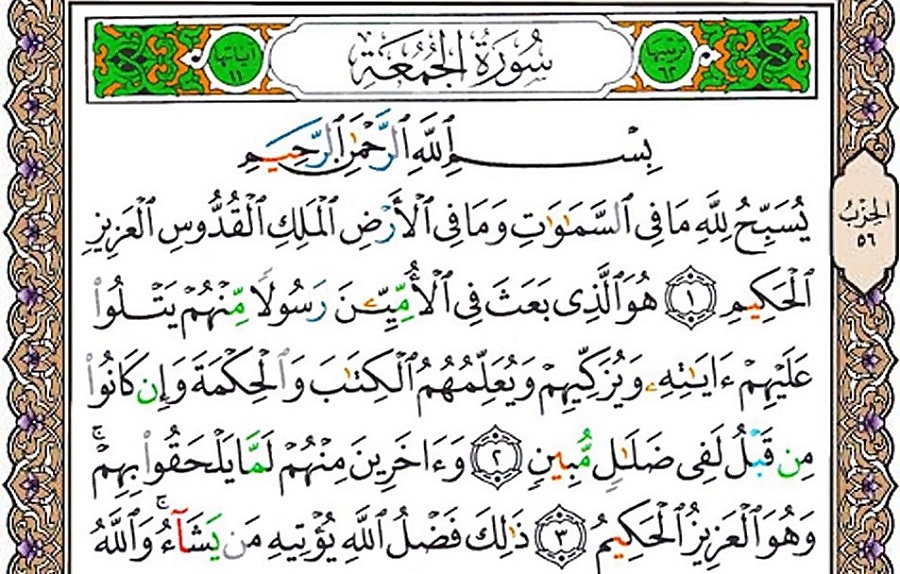 ترتيبها ٦٢
سُورَةُ الجُمُعَةِ
آياتها ١١
بِسْمِ ٱللَّهِ ٱلرَّحْمَٰنِ ٱلرَّحِيمِ
يُسَبِّحُ لِلَّهِ مَا فِى ٱلسَّمَٰوَٰتِ وَمَا فِى ٱلْأَرْضِ ٱلْمَلِكِ ٱلْقُدُّوسِ ٱلْعَزِيزِ
ٱلْحَكِيمِ ١ هُوَ ٱلَّذِى بَعَثَ فِى ٱلْأُمِّيِّۦنَ رَسُولًا مِّنْهُمْ يَتْلُوا۟
عَلَيْهِمْ ءَايَٰتِهِۦ وَيُزَكِّيهِمْ وَيُعَلِّمُهُمُ ٱلْكِتَٰبَ وَٱلْحِكْمَةَ وَإِن كَانُوا۟
مِن قَبْلُ لَفِى ضَلَٰلٍ مُّبِينٍ ٢ وَءَاخَرِينَ مِنْهُمْ لَمَّا يَلْحَقُوا۟ بِهِمْ ۚ
وَهُوَ ٱلْعَزِيزُ ٱلْحَكِيمُ ٣ ذَٰلِكَ فَضْلُ ٱللَّهِ يُؤْتِيهِ مَن يَشَآءُ ۚ وَٱللَّهُ
الحِزْبُ
٥٦